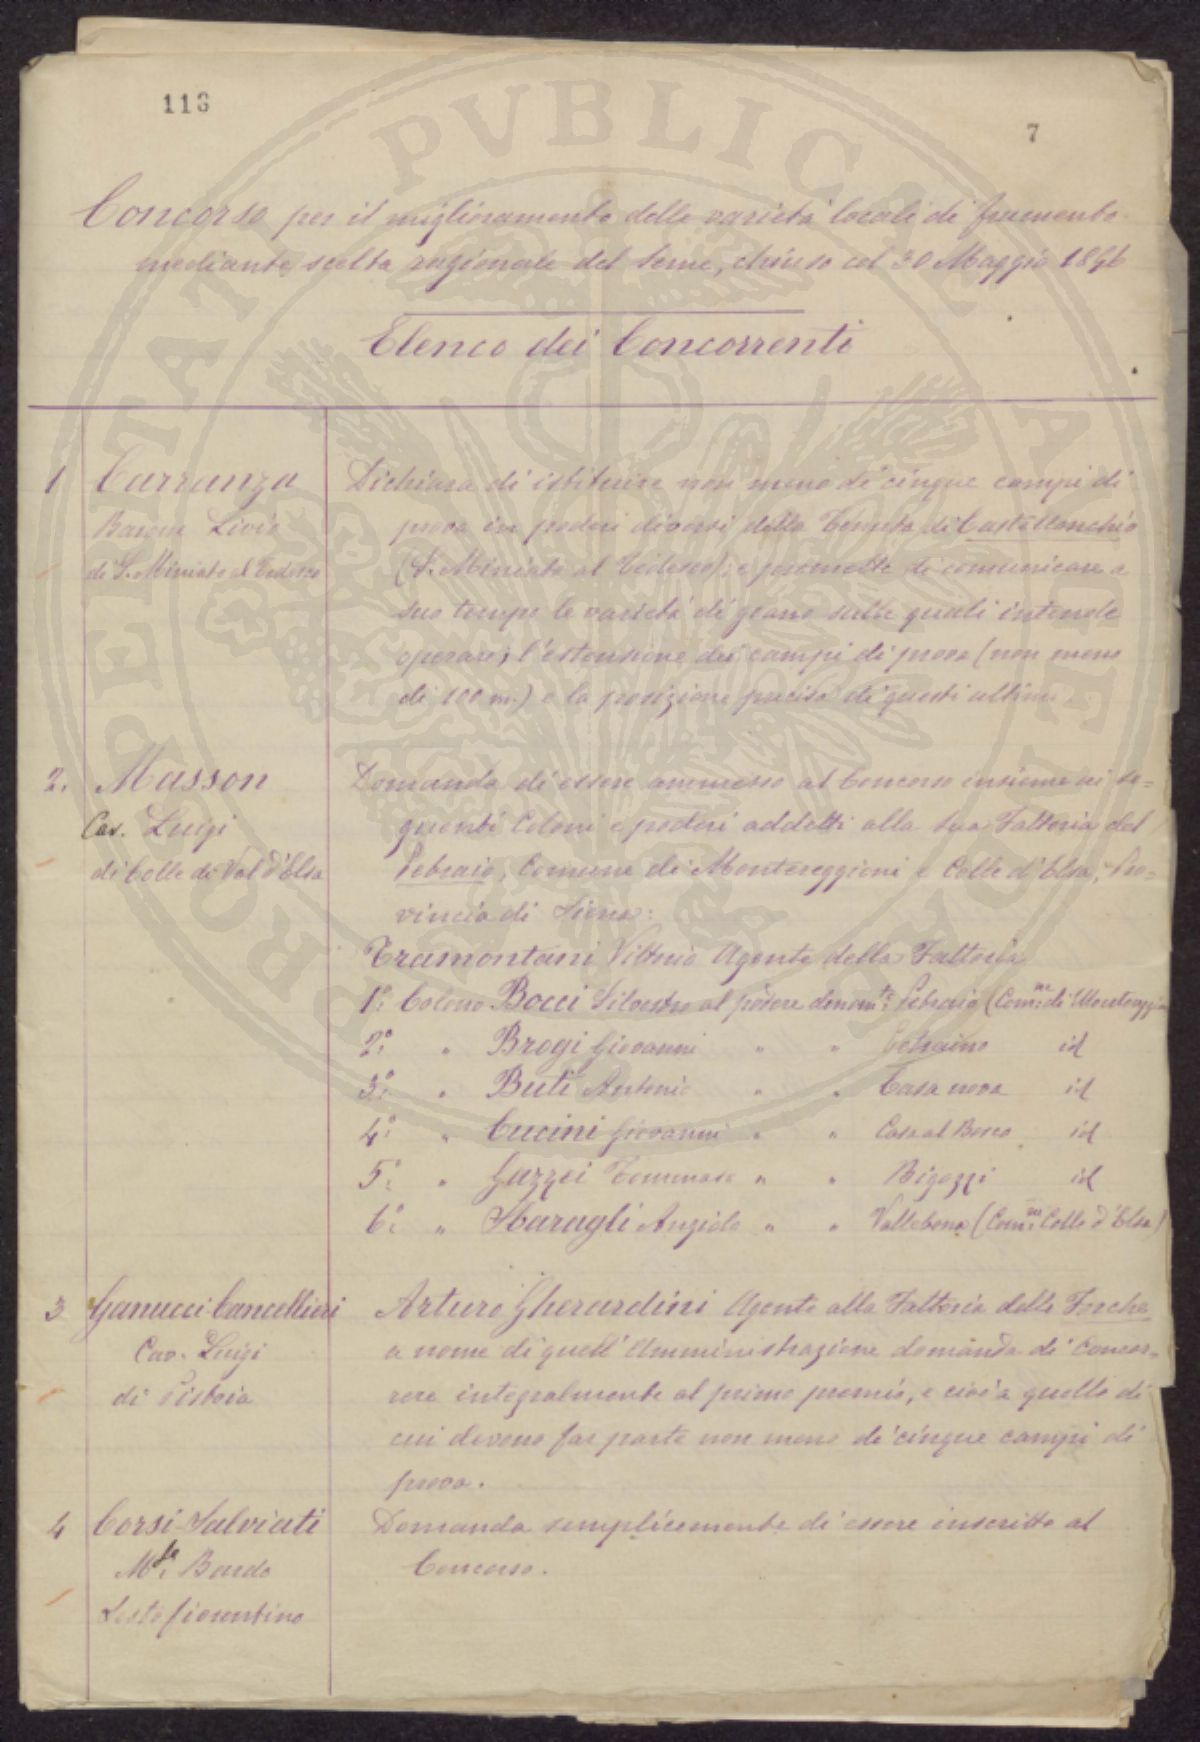 116
7
Concorso per il miglioramento delle varietà locali di frumento
mediante scelta razionale del seme, chiuso col 30 Maggio 1896
Elenco dei Concorrenti
1 Carranza
Barone Livio
di S. Miniato al Tedesco
Dichiara di istituire non meno di cinque campi di
prova in poderi diversi della Tenuta di Castellonchio
(S. Miniato al Tedesco); e promette di comunicare a
suo tempo le varietà di grano sulle quali intende
operare, l'estensione dei campi di prova (non meno
di 100 m.) e la posizione precisa di questi ultimi.
2. Masson
Cav. Luigi
di Colle di Val d'Elsa
Domanda di essere ammesso al Concorso insieme ai se=
guenti Coloni e poderi addetti alla sua Fattoria del
Pebraio, Comune di Montereggioni e Colle d'Elsa, Pro=
vincia di Siena:
Tramontani Vittorio Agente della Fattoria
1º: Colono Bocci Silvestro al podere denom.to Pebraio (Com.ne di Montereggioni
2º: " Brogi Giovanni " " Petraino id
3º: " Buti Antonio " " Casa nova id
4º: " Cucini Giovanni " " Casa al Bosco id
5º: " Gazzei Tommaso " " Bigozzi id
6º: " Maragli Angiolo " " Vallebona (Com.ne Colle d'Elsa)
3 Ganucci Cancellieri
Cav. Luigi
di Pistoia
Arturo Gherardini Agente alla Fattoria delle Forche
a nome di quell'Amministrazione domanda di Concor=
rere integralmente al primo premio, e cioè a quello di
cui devono far parte non meno di cinque campi di
prova.
4 Corsi Salviati
M.se Bardo
Sesto fiorentino
Domanda semplicemente di essere inscritto al
Concorso.
PROSPERITATI PVBLICAE AVGENDAE